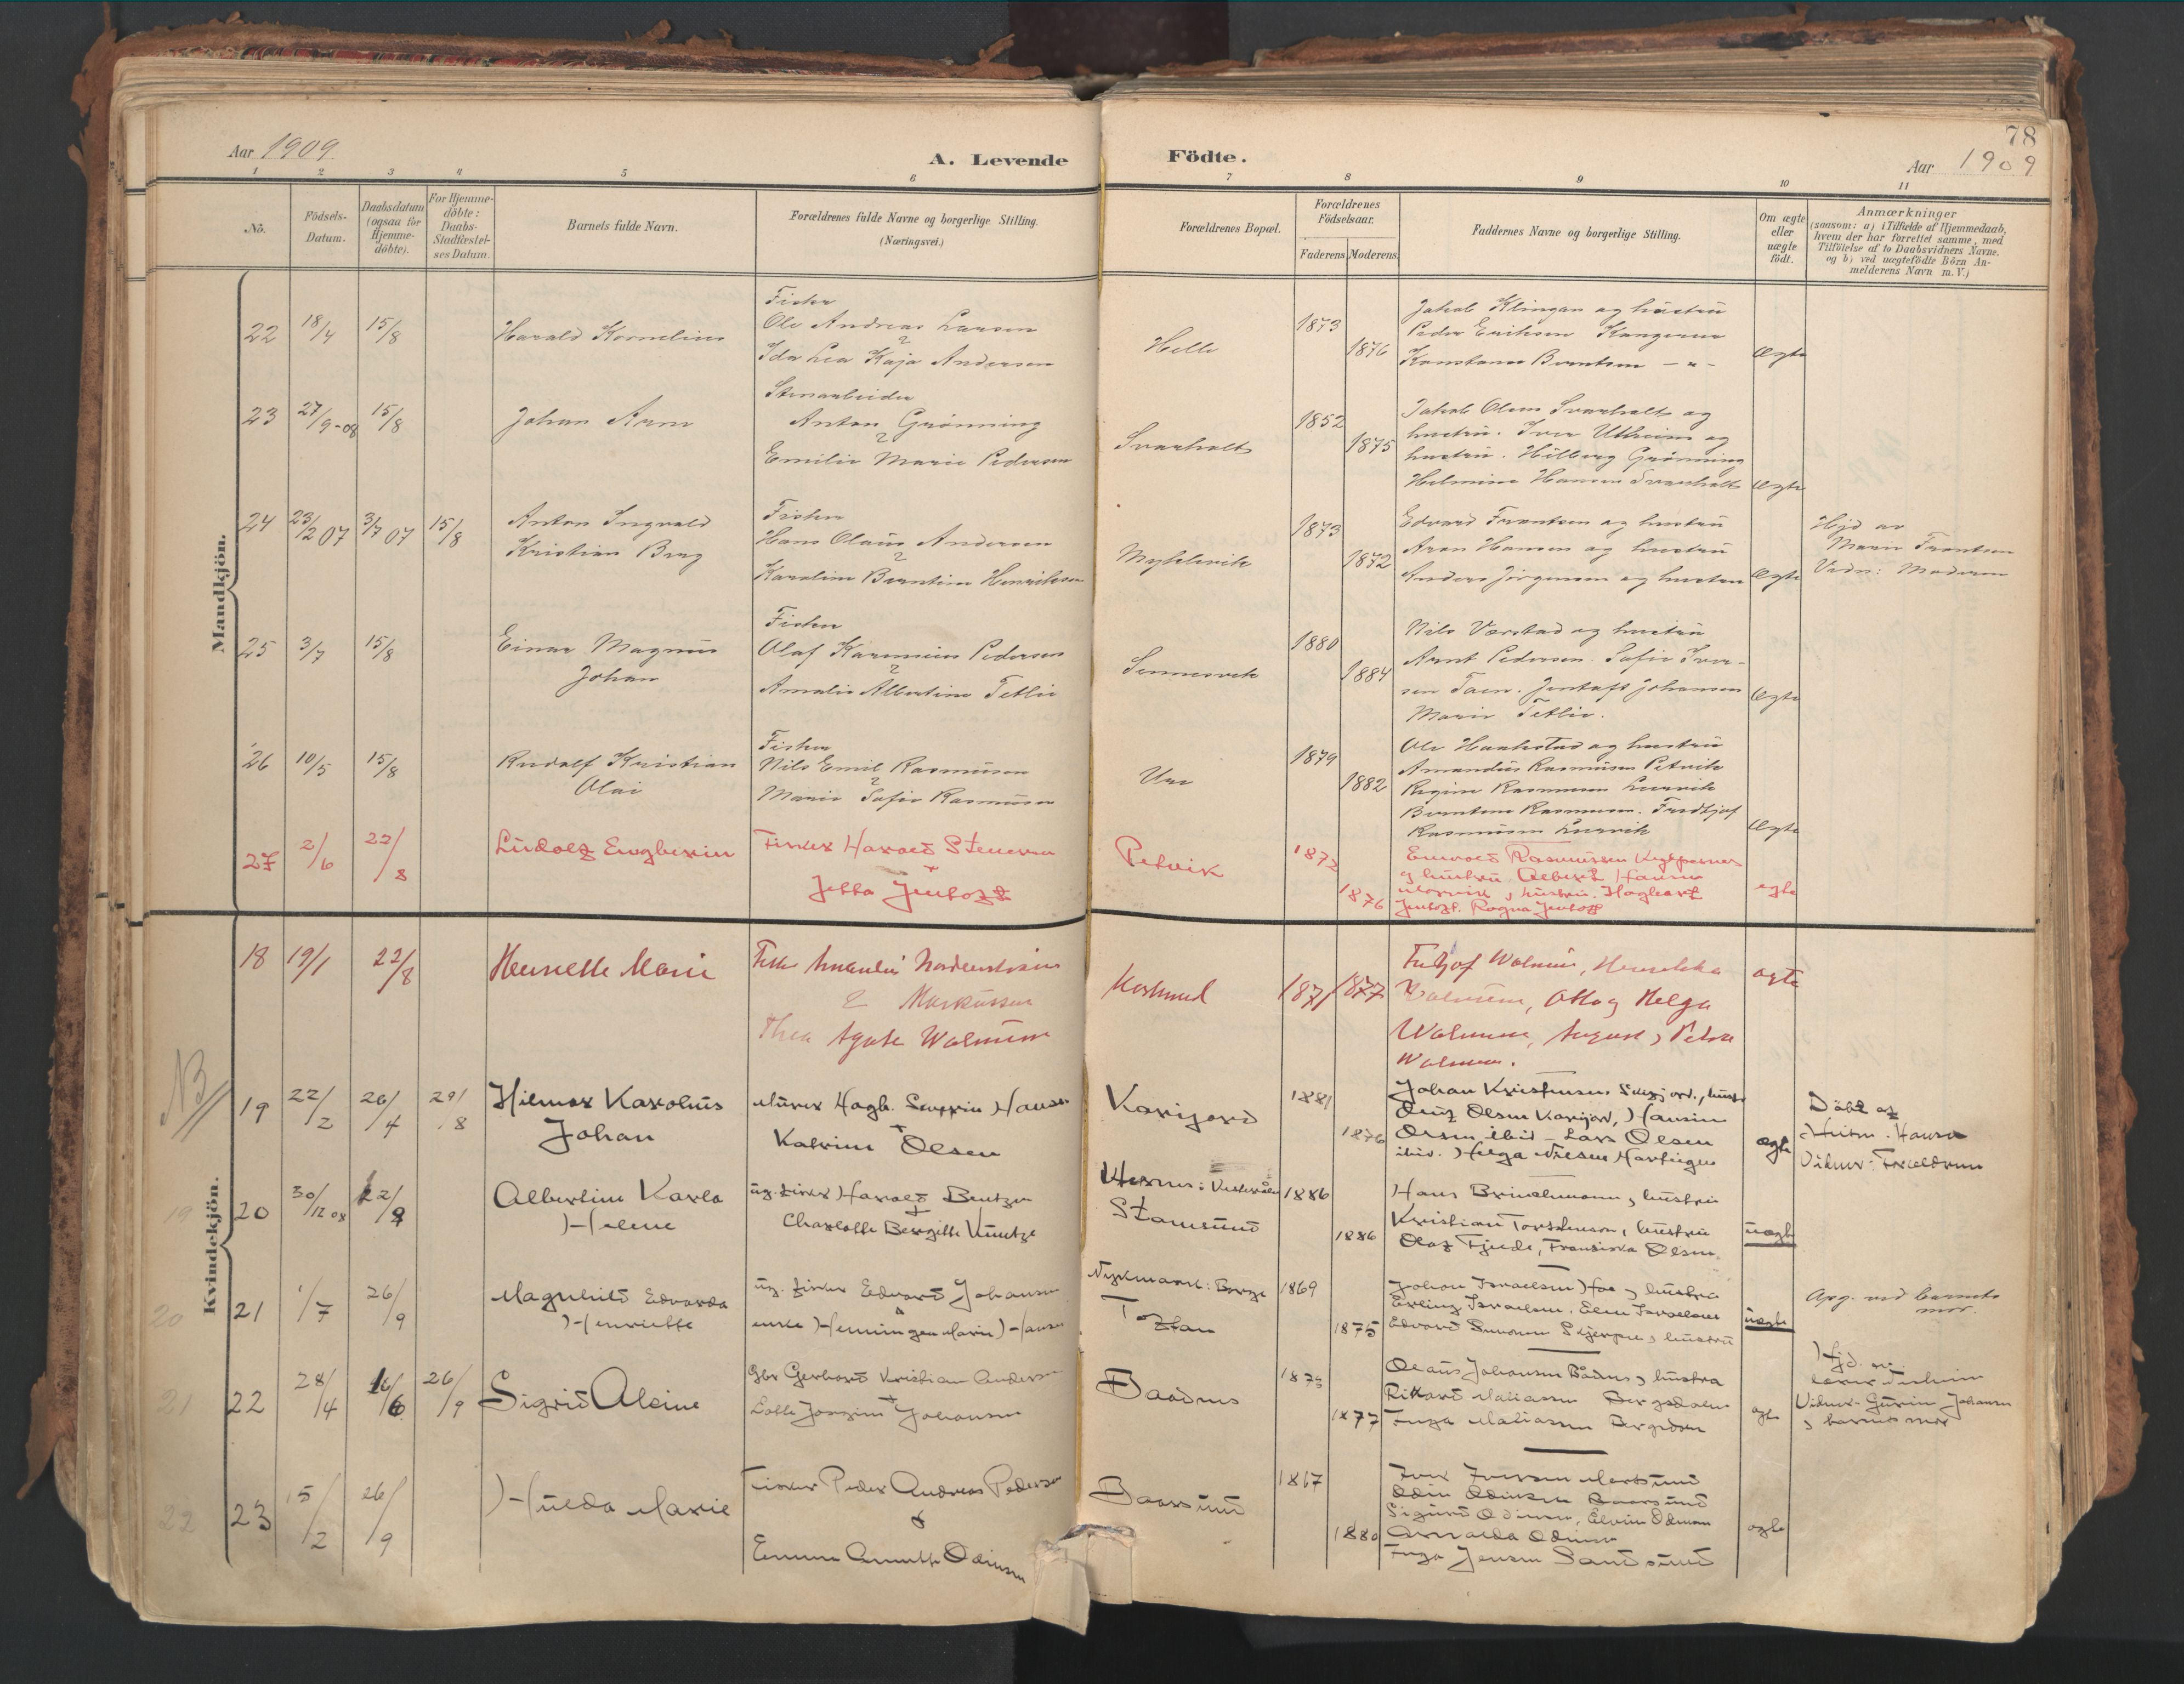 78
Aar 1909
A. Levende Födte.
Aar 1909
1 2 3 4 5 6 7 8 9 10 11
No.
Födsels-Datum.
Daabsdatum (ogsaa for Hjemme-döbte).
For Hjemme-döbte: Daabs-Stadfæstel-ses Datum.
Barnets fulde Navn.
Forældrenes fulde Navne og borgerlige Stilling.
(Næringsvei.)
Forældrenes Bopæl.
Forældrenes Födselsaar.
Faderens. Moderens.
Faddernes Navne og borgerlige Stilling.
Om ægte eller uægte födt.
Anmærkninger
(saasom: a) i Tilfælde af Hjemmedaab,
hvem der har forrettet samme, med
Tilföielse af to Daabsvidners Navne.
og b) ved uægtefödte Börn An-
melderens Navn m. V.)
Mandkjön.
22 18/4 15/8 Harald Kornelius
Fisker
Ole Andreas Larsen
&
Ida Lea Kaja Andersen
Helle 1873 1876
Jakob Klingan og hustru
Peder Eriksen
Konstanse Berntsen — " -
Ægte
23 27/9-08 15/8 Johan Arne
Stenarbeider
Anton Grönning
&
Emilie Marie Pedersen
Svarholt 1852 1875
Jakob Olsen Svarholt og
hustru. Iver Utheim og
hustru. Hilberg Grönning
Helmine Hansen Svarholt
Ægte
24 23/2 07 3/7 07 15/8
Anton Ingvald
Kristian Brag
Fisker
Hans Olaus Andersen
&
Karoline Berntine Henriksen
Myklevik 1873 1872
Edvard Frantsen og hustru
Aron Hansen og hustru
Anders Jörgensen og hustru
Ægte
Hjd av
Marie Frantsen
Vidn: Moderen
25 3/7 15/8
Einar Magnus
Johan
Fisker
Olaf Karenius Pedersen
&
Amalie Albertine Tetlie
Sennesvik 1880 1884
Nils Værstad og hustru
Arnt Pedersen. Sofie Iver-
sen Taen. Jentoft Johansen
Marie Tetlie.
Ægte
26 10/5 15/8
Rudolf Kristian
Olai
Fisker
Nils Emil Rasmussen
&
Marie Sofie Rasmussen
Ure 1879 1882
Ole Haakstad og hustru
Amandus Rasmussen Petvik
Regine Rasmussen
Berntine Rasmussen. Fredtjof
Rasmussen
Ægte
27 2/6 22/8 Ludolf Engberin
Fisker Harald Stensen
+
Jetta Jentoft
Petvik 1872 1876
Rasmussen
og hustru Albert Hansen
hustru. Hagbart
Jentoft. Ragna Jentoft
egte
Kvindekjön.
18 19/1 22/8 Henrette Marie
Markussen
&
Thea Agate Walnum
1871 1877
Fritjof Walnum,
Walnum, Otto og Helga
Walnum, August, Petra
Walnum.
ægte
NB
19 22/2 26/4 29/8
Hilmar Karolius
Johan
Murer Hagb. Severin Hansen
+
Katrine Olsen
Karijord 1881 1876
Johan Kristensen
Olsen Karijord, Hansine
Olsen ibid - Lars Olsen
ibid. Helga Nilsen
ægte
Döbt af
Hansen
Vidner: Forældrene
19 20 30/12 08 12/9
Albertine Karla
Helene
ug. fisker Harald Bentzen
+
Charlotte Bergitte Kuntze
Vesterålen
Stamsund
1886 1886
Hans Brinchmann, hustru
Kristian Torstensen, hustru
Olaf Fjude, Fransiska Olsen
uægte
20 21 1/7 26/9
Magnhild Edvarda
Henriette
ug. fisker Edvard Johansen
&
enke Henningen Marie Hansen
Borge
Toftan
1869 1875
Johan Israelsen hustru
Erling Israelsen, Elen Israelsen
Edvard Simonsen Skjerpen, hustru
uægte
Opg. ved barnets
mor.
21 22 28/4 16/6 26/9 Sigrid Alvine
Gbr Gerhard Kristian Andersen
+
Lotte Jorgine Johansen
Baadnes 1875 1877
Olaus Johansen Bådnes, hustru
Rikard Matiassen Bergsdalen
Inga Matiassen Bergsdalen
ægte
Hjd. av
lærer
Vidner: Gurine Johansen
& barnets mor
22 23 15/2 26/9 Hulda Marie
Fisker Peder Andreas Pedersen
&
Emma Annette Odinsen
Baarsund 1867 1880
Iver Iversen Mortsund
Odin Odinsen Baarsund
Sigurd Odinsen, Elvine Odinsen
Arnalda Odinsen
Inga Jensen Sandsund
ægte